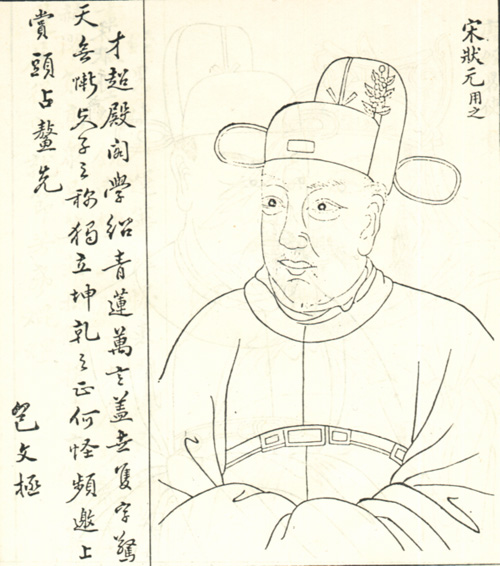 宋狀元用之
才超殿閣學紹青蓮萬言蓋世隻字驚
天無慚夫子之稱獨立坤乾之正何怪頻邀上
賞頭占鰲先
文極